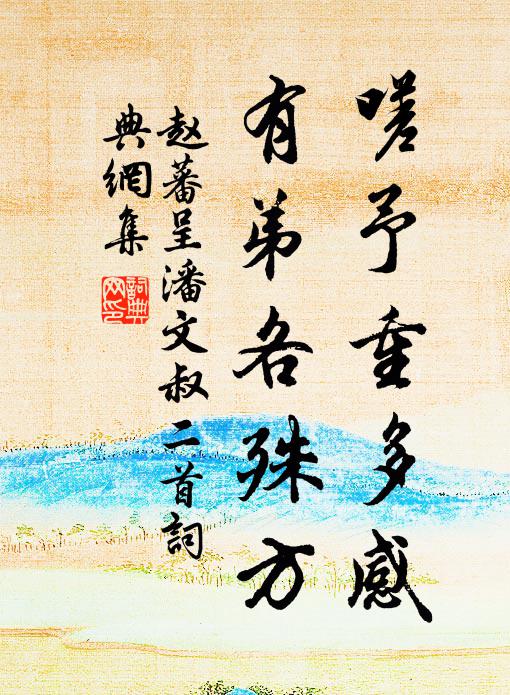 嗟予重多感
有弟各殊方
赵蕃呈潘文叔二首詞
典網集
詞典
网印